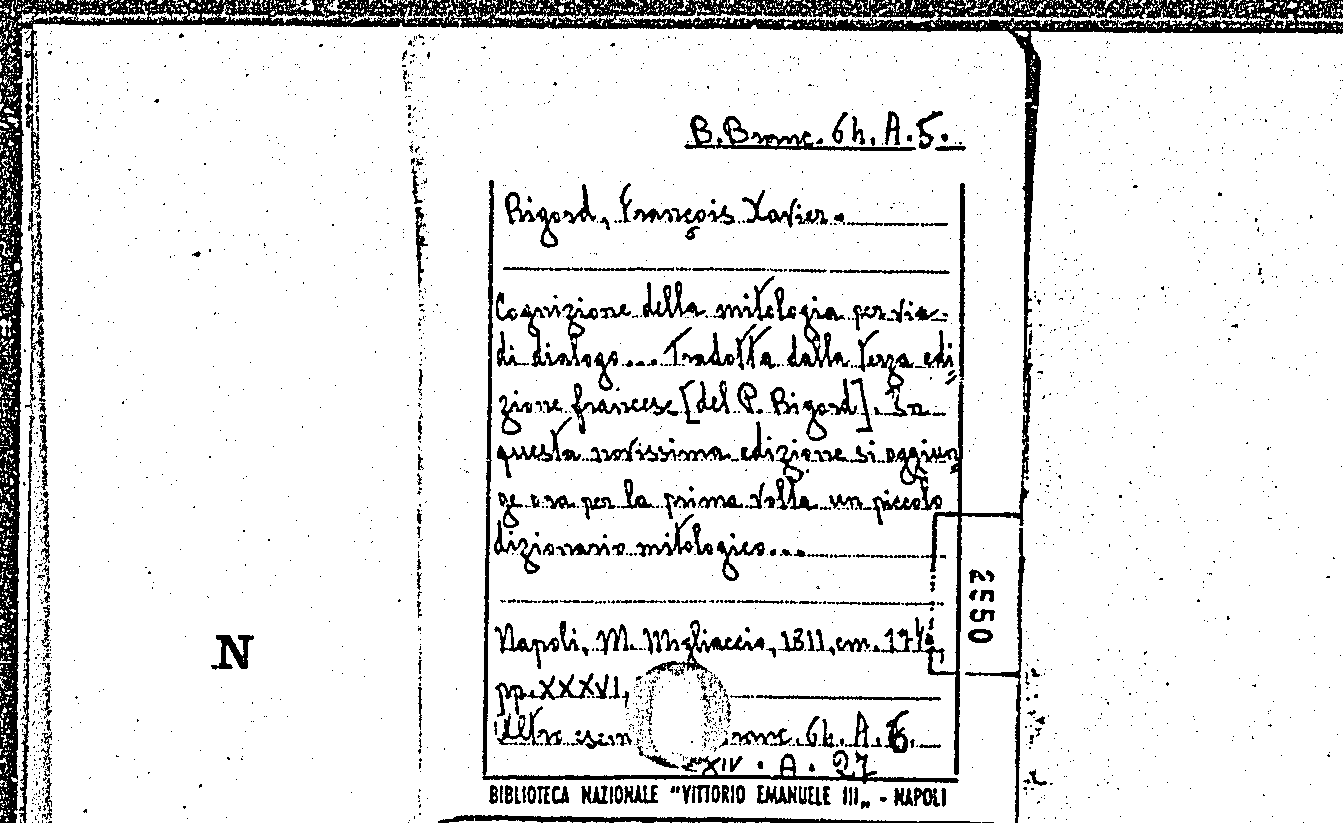 B. Branc. 6h. A. 5.
Rigord, François Xavier.
Cognizione della mitologia per via
di dialogo... Tradotta dalla terza edi
zione francese [del P. Rigord]. In
questa novissima edizione si aggiun
ge ora per la prima volta un piccolo
dizionario mitologico...
Napoli, M. Migliaccio, 1811, cm. 17
pp. XXXVI,
Altro 6h. A. 6.
XIV. A. 27
BIBLIOTECA NAZIONALE "VITTORIO EMANUELE III„ - NAPOLI
2550
N